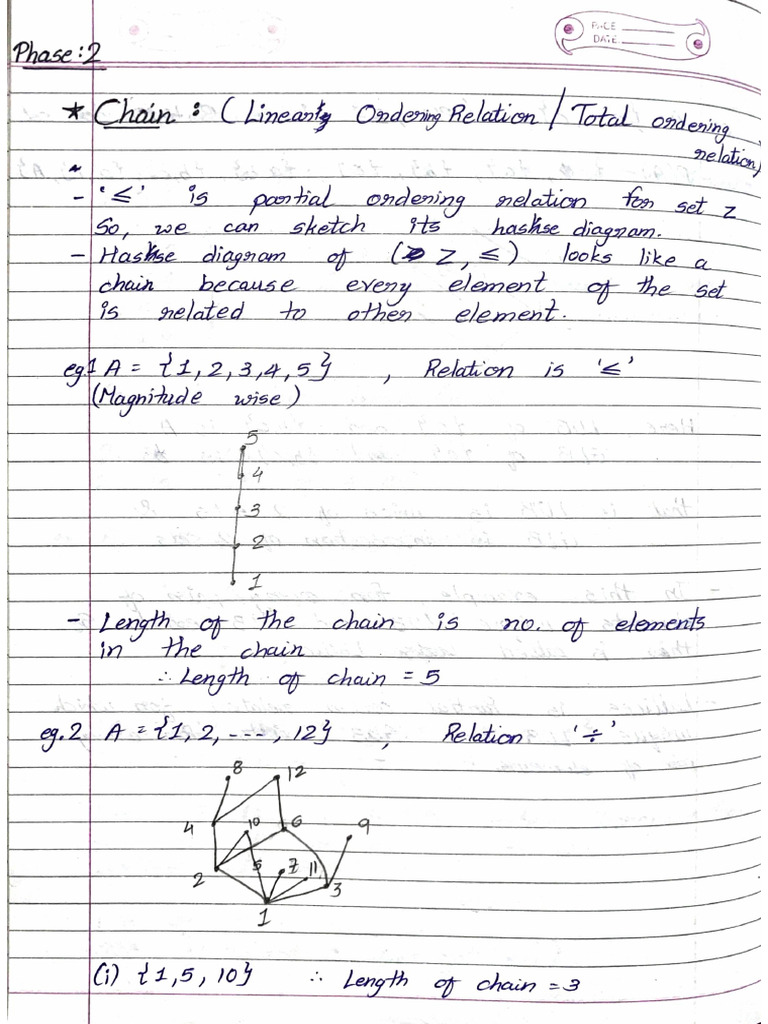 PAGE
DATE
Phase:2
* Chain : (Linearly Ordering Relation / Total ordering
relation)
- '≤' is partial ordering relation for set z
So, we can sketch its hashse diagram.
- Hashse diagram of (Z, ≤) looks like a
chain because every element of the set
is related to other element.
eg.1 A = {1,2,3,4,5} , Relation is '≤'
(Magnitude wise)
5
4
3
2
1
- Length of the chain is no. of elements
in the chain
∴ Length of chain = 5
eg.2 A = {1, 2, ---, 12} , Relation '÷'
8 12
4 10 6 9
5 7 11
2 3
1
(i) {1,5,10} ∴ Length of chain = 3